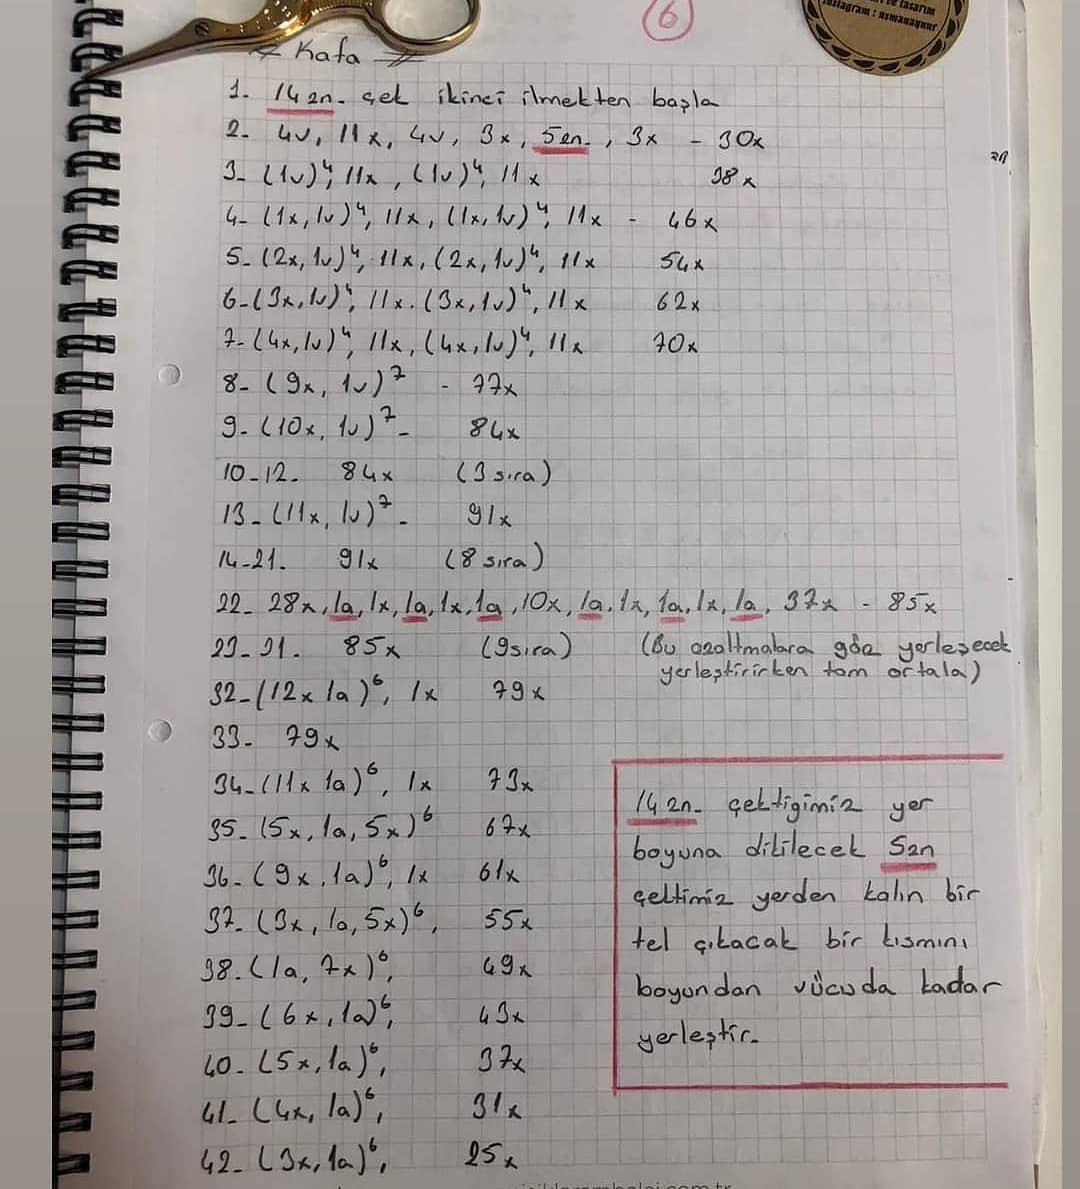 6
Kafa
1. 14 zn. çek ikinci ilmekten başla
2. 4v, 11x, 4v, 3x, 5zn., 3x - 30x
3- (1v)⁴, 11x, (1v)⁴, 11x 38x
4- (1x, 1v)⁴, 11x, (1x, 1v)⁴, 11x - 46x
5- (2x, 1v)⁴, 11x, (2x, 1v)⁴, 11x 54x
6- (3x, 1v)⁴, 11x. (3x, 1v)⁴, 11x 62x
7- (4x, 1v)⁴, 11x, (4x, 1v)⁴, 11x 70x
8- (9x, 1v)⁷ - 77x
9- (10x, 1v)⁷ - 84x
10-12. 84x (3 sıra)
13- (11x, 1v)⁷- 91x
14-21. 91x (8 sıra)
22- 28x, 1a, 1x, 1a, 1x, 1a, 10x, 1a, 1x, 1a, 1x, 1a, 37x - 85x
23-31. 85x (9sıra) (Bu azaltmalara göz yerleşecek
yerleştirirken tam ortala)
32- (12x 1a)⁶, 1x 79x
33- 79x
34- (11x 1a)⁶, 1x 73x
35- (5x, 1a, 5x)⁶ 67x
36- (9x, 1a)⁶, 1x 61x
37- (3x, 1a, 5x)⁶, 55x
38. (1a, 7x)⁶, 49x
39- (6x, 1a)⁶, 43x
40- (5x, 1a)⁶, 37x
41- (4x, 1a)⁶, 31x
42- (3x, 1a)⁶, 25x
14 zn. çektiğimiz yer
boyuna dikilecek 5zn
çektimiz yerden kalın bir
tel çıkacak bir kısmını
boyundan vücuda kadar
yerleştir.